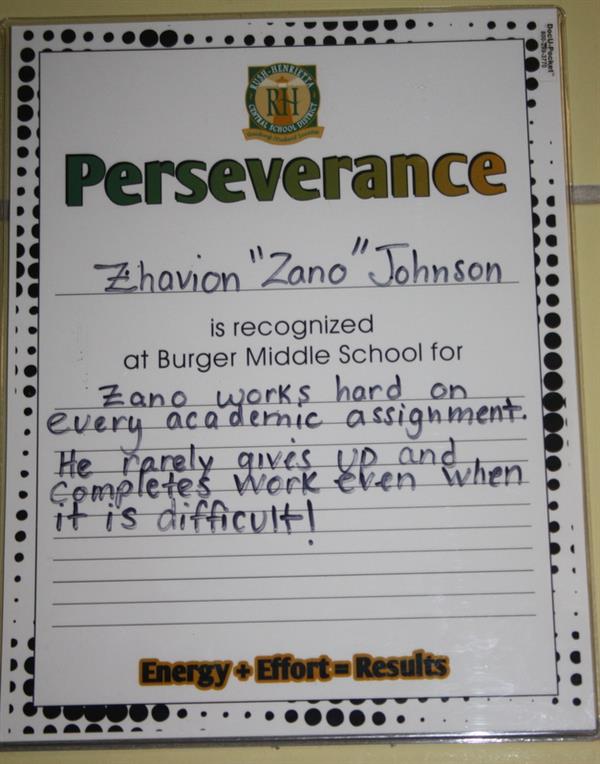 DocU-Pocket™
RUSH-HENRIETTA
RH
CENTRAL SCHOOL DISTRICT
Perseverance
Zhavion "Zano" Johnson
is recognized
at Burger Middle School for
Zano works hard on
every academic assignment.
He rarely gives up and
completes work even when
it is difficult!
Energy + Effort = Results